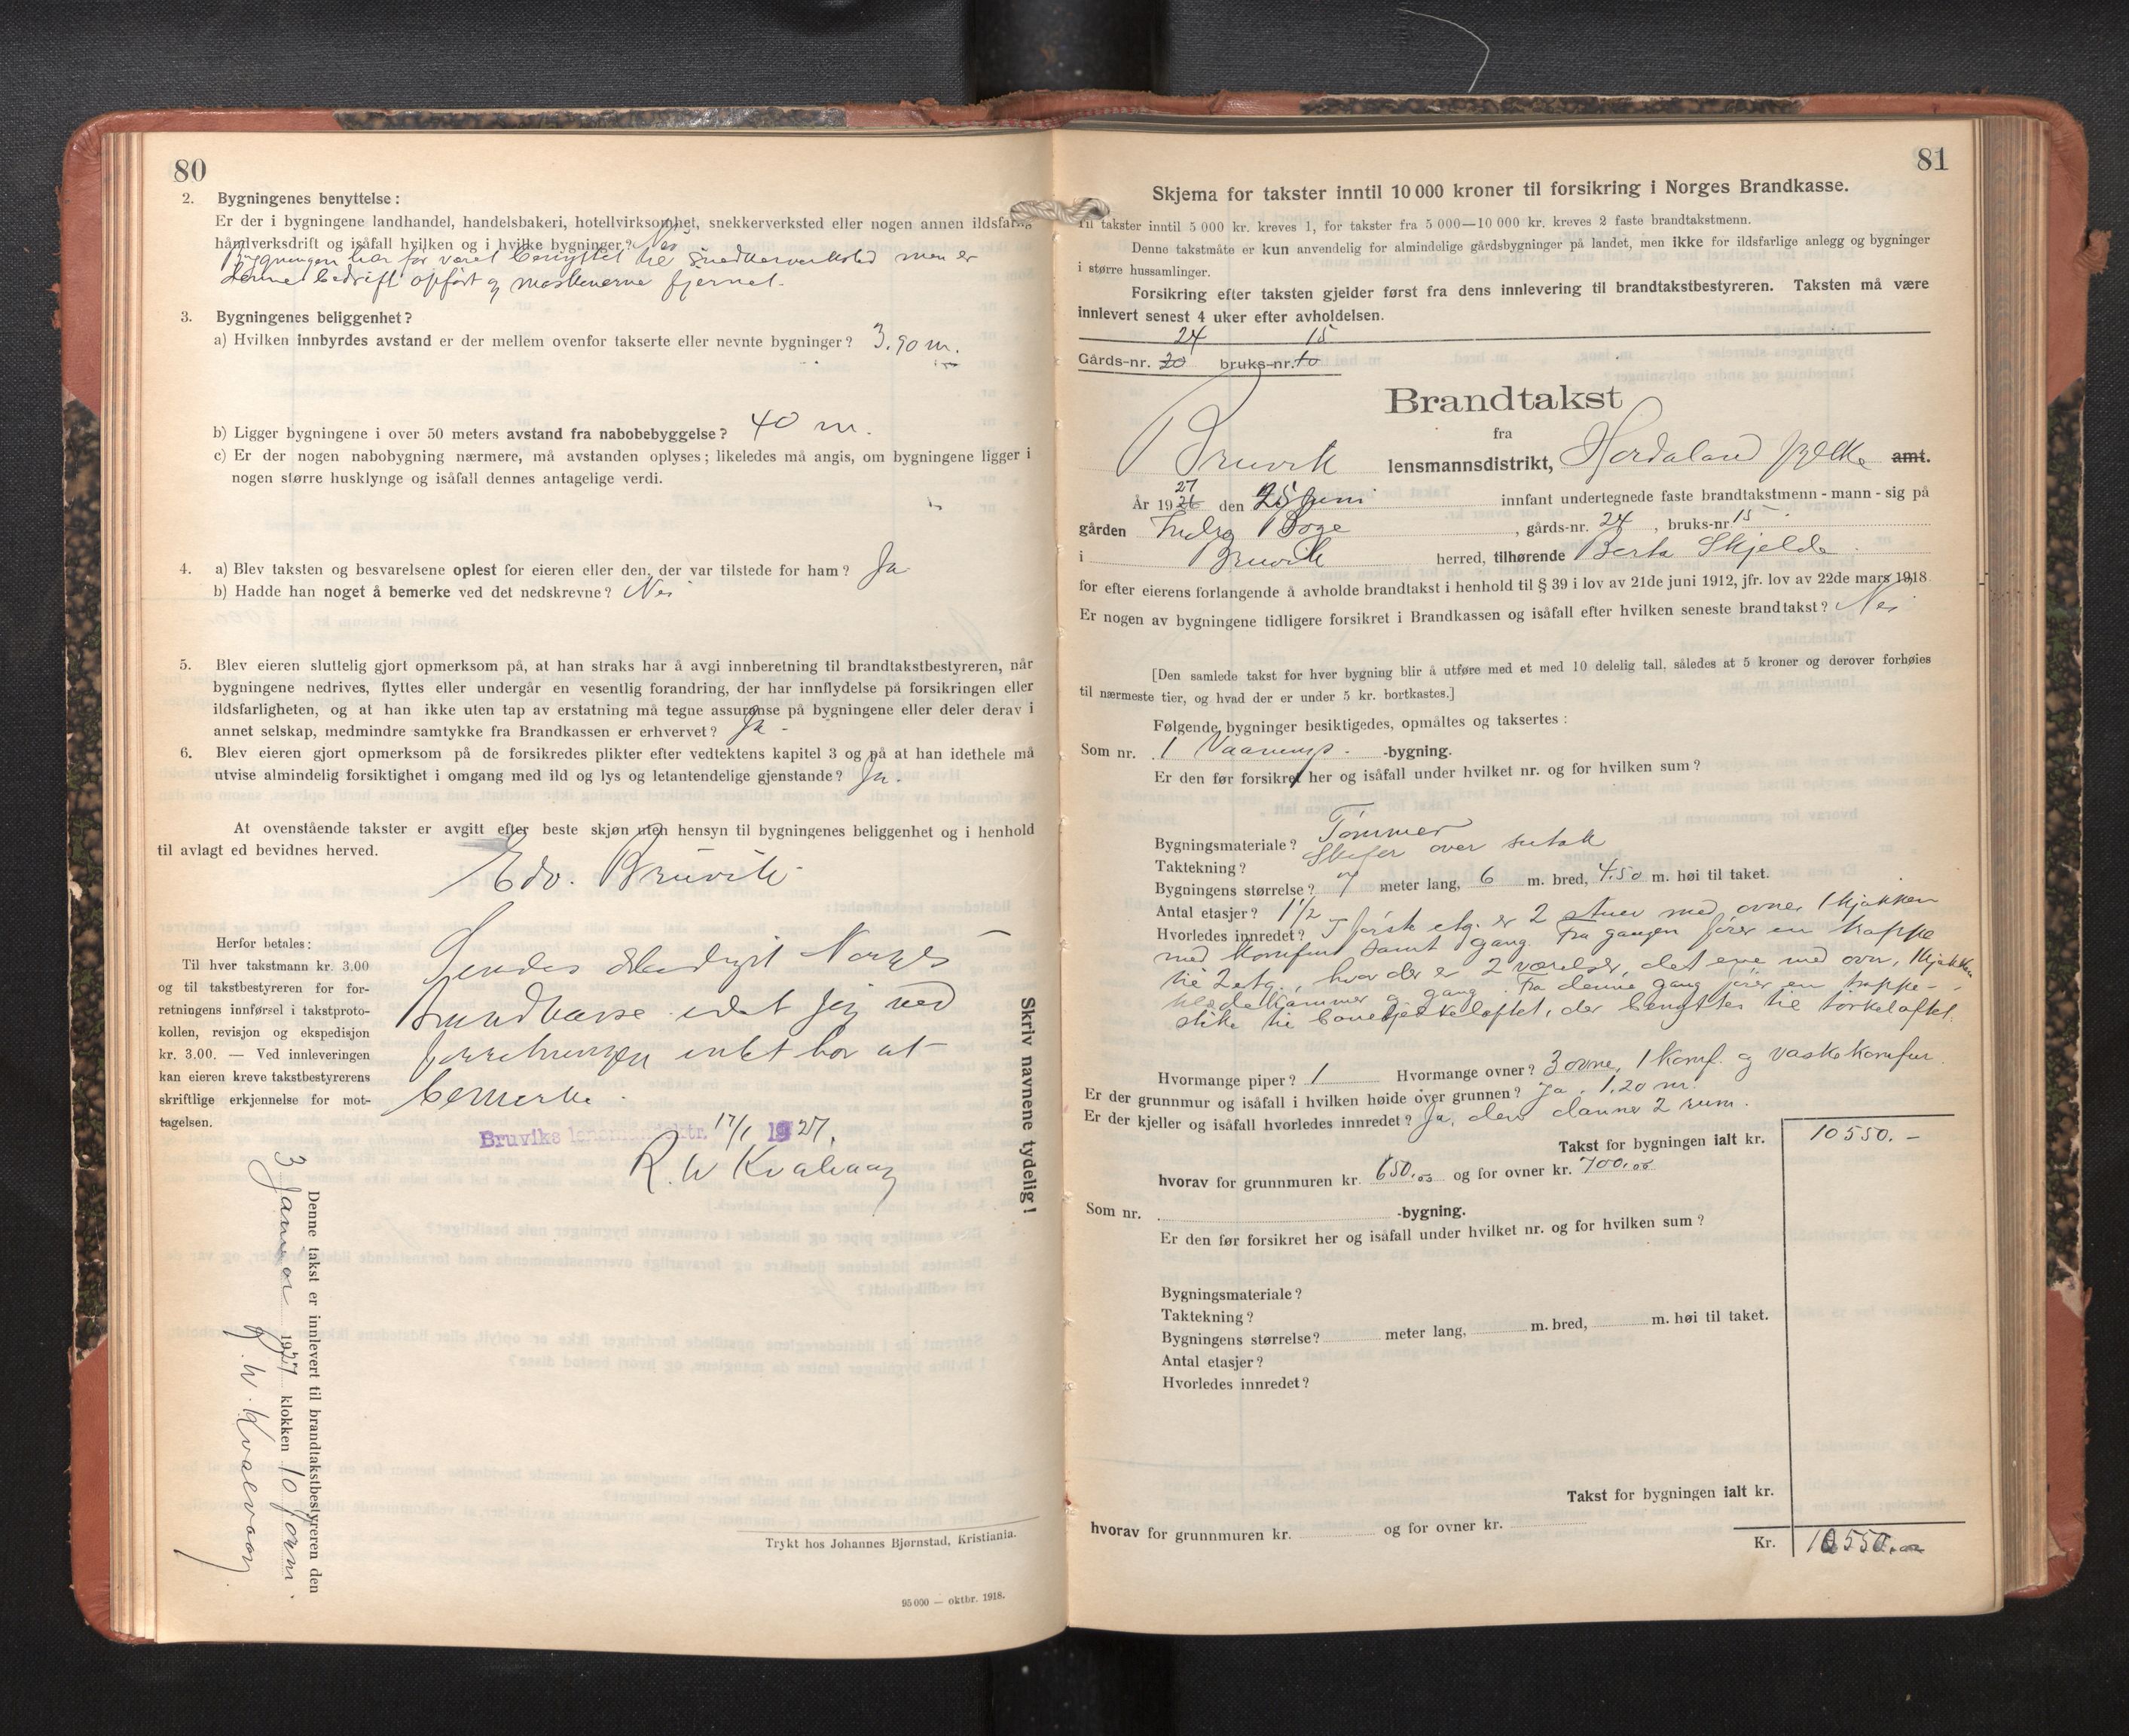 80
2. Bygningenes benyttelse:
Er der i bygningene landhandel, handelsbakeri, hotellvirksomhet, snekkerverksted eller nogen annen ildsfarlig
håndverksdrift og isåfall hvilken og i hvilke bygninger? Nei
Bygningen har før været benyttet til snedkerverksted men er
denne bedrift ophørt og maskinerne fjernet.
3. Bygningenes beliggenhet?
a) Hvilken innbyrdes avstand er der mellem ovenfor takserte eller nevnte bygninger? 3.90 m.
b) Ligger bygningene i over 50 meters avstand fra nabobebyggelse? 40 m.
c) Er der nogen nabobygning nærmere, må avstanden oplyses; likeledes må angis, om bygningene ligger i
nogen større husklynge og isåfall dennes antagelige verdi.
4. a) Blev taksten og besvarelsene oplest for eieren eller den, der var tilstede for ham? Ja
b) Hadde han noget å bemerke ved det nedskrevne? Nei
5. Blev eieren sluttelig gjort opmerksom på, at han straks har å avgi innberetning til brandtakstbestyreren, når
bygningene nedrives, flyttes eller undergår en vesentlig forandring, der har innflydelse på forsikringen eller
ildsfarligheten, og at han ikke uten tap av erstatning må tegne assuranse på bygningene eller deler derav i
annet selskap, medmindre samtykke fra Brandkassen er erhvervet? Ja -
6. Blev eieren gjort opmerksom på de forsikredes plikter efter vedtektens kapitel 3 og på at han idethele må
utvise almindelig forsiktighet i omgang med ild og lys og letantendelige gjenstande? Ja.
At ovenstående takster er avgitt efter beste skjøn uten hensyn til bygningenes beliggenhet og i henhold
til avlagt ed bevidnes herved.
Edv. Bruvik
Herfor betales:
Til hver takstmann kr. 3.00
og til takstbestyreren for for-
retningens innførsel i takstproto-
kollen, revisjon og ekspedisjon
kr. 3.00. — Ved innleveringen
kan eieren kreve takstbestyrerens
skriftlige erkjennelse for mot-
tagelsen.
Sendes Norges
Brandkasse idet jeg ved
forretningen intet har at
bemerke.
Bruviks lensmannsdistr. 17/1 1927.
R. W Kvalvaag
Skriv navnene tydelig!
Denne takst er innlevert til brandtakstbestyreren den
3 Januar 1927 klokken 10 form.
R. W. Kvalvaag
Trykt hos Johannes Bjørnstad, Kristiania.
95 000 — oktbr. 1918.
81
Skjema for takster inntil 10 000 kroner til forsikring i Norges Brandkasse.
Til takster inntil 5 000 kr. kreves 1, for takster fra 5 000—10 000 kr. kreves 2 faste brandtakstmenn.
Denne takstmåte er kun anvendelig for almindelige gårdsbygninger på landet, men ikke for ildsfarlige anlegg og bygninger
i større hussamlinger.
Forsikring efter taksten gjelder først fra dens innlevering til brandtakstbestyreren. Taksten må være
innlevert senest 4 uker efter avholdelsen.
24 15
Gårds-nr. 20 bruks-nr. 10
Brandtakst
fra
Bruvik lensmannsdistrikt, Hordaland fylke amt.
27
År 1926 den 25 Juni innfant undertegnede faste brandtakstmenn - mann - sig på
gården Indre Boge, gårds-nr. 24, bruks-nr. 15
i Bruvik herred, tilhørende Berta Skjelde.
for efter eierens forlangende å avholde brandtakst i henhold til § 39 i lov av 21de juni 1912, jfr. lov av 22de mars 1918
Er nogen av bygningene tidligere forsikret i Brandkassen og isåfall efter hvilken seneste brandtakst? Nei
[Den samlede takst for hver bygning blir å utføre med et med 10 delelig tall, således at 5 kroner og derover forhøies
til nærmeste tier, og hvad der er under 5 kr. bortkastes.]
Følgende bygninger besiktigedes, opmåltes og taksertes:
Som nr. 1 Vaanings- -bygning.
Er den før forsikret her og isåfall under hvilket nr. og for hvilken sum?
Bygningsmateriale? Tømmer
Taktekning? Skifer over sutak
Bygningens størrelse? 7 meter lang, 6 m. bred, 4.50 m. høi til taket.
Antal etasjer? 1 1/2
Hvorledes innredet? I første etg. er 2 stuer med ovner 1 kjøkken
med komfur samt gang. Fra gangen fører en trappe
til 2 etg., hvor der er 2 værelser, det ene med ovn, 1 kjøkken
klædekammer og gang. Fra denne gang fører en trappe-
stike til loftet, der benyttes til tørkeloftet.
Hvormange piper? 1 Hvormange ovner? 3 ovne, 1 Komf. og vaskekomfur.
Er der grunnmur og isåfall i hvilken høide over grunnen? Ja, 1,20 m.
Er der kjeller og isåfall hvorledes innredet? Ja, den danner 2 rum.
Takst for bygningen ialt kr. 10550.-
hvorav for grunnmuren kr. 650.00 og for ovner kr. 700.00
Som nr. -bygning.
Er den før forsikret her og isåfall under hvilket nr. og for hvilken sum?
Bygningsmateriale?
Taktekning?
Bygningens størrelse? meter lang, m. bred, m. høi til taket.
Antal etasjer?
Hvorledes innredet?
Takst for bygningen ialt kr.
hvorav for grunnmuren kr. og for ovner kr.
Kr. 10550.00